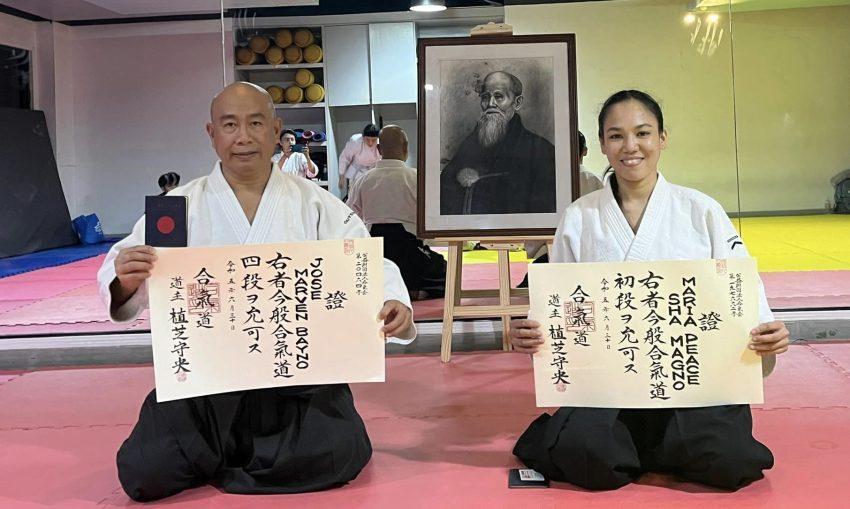 證
JOSE
MARVEN BAYNO
右者今般合氣道
四段ヲ允可ス
令和五年六月三十日
合氣道
道主 植芝守央
證
MARIA PEACE
SHA MAGNO
右者今般合氣道
初段ヲ允可ス
令和五年六月三十日
合氣道
道主 植芝守央